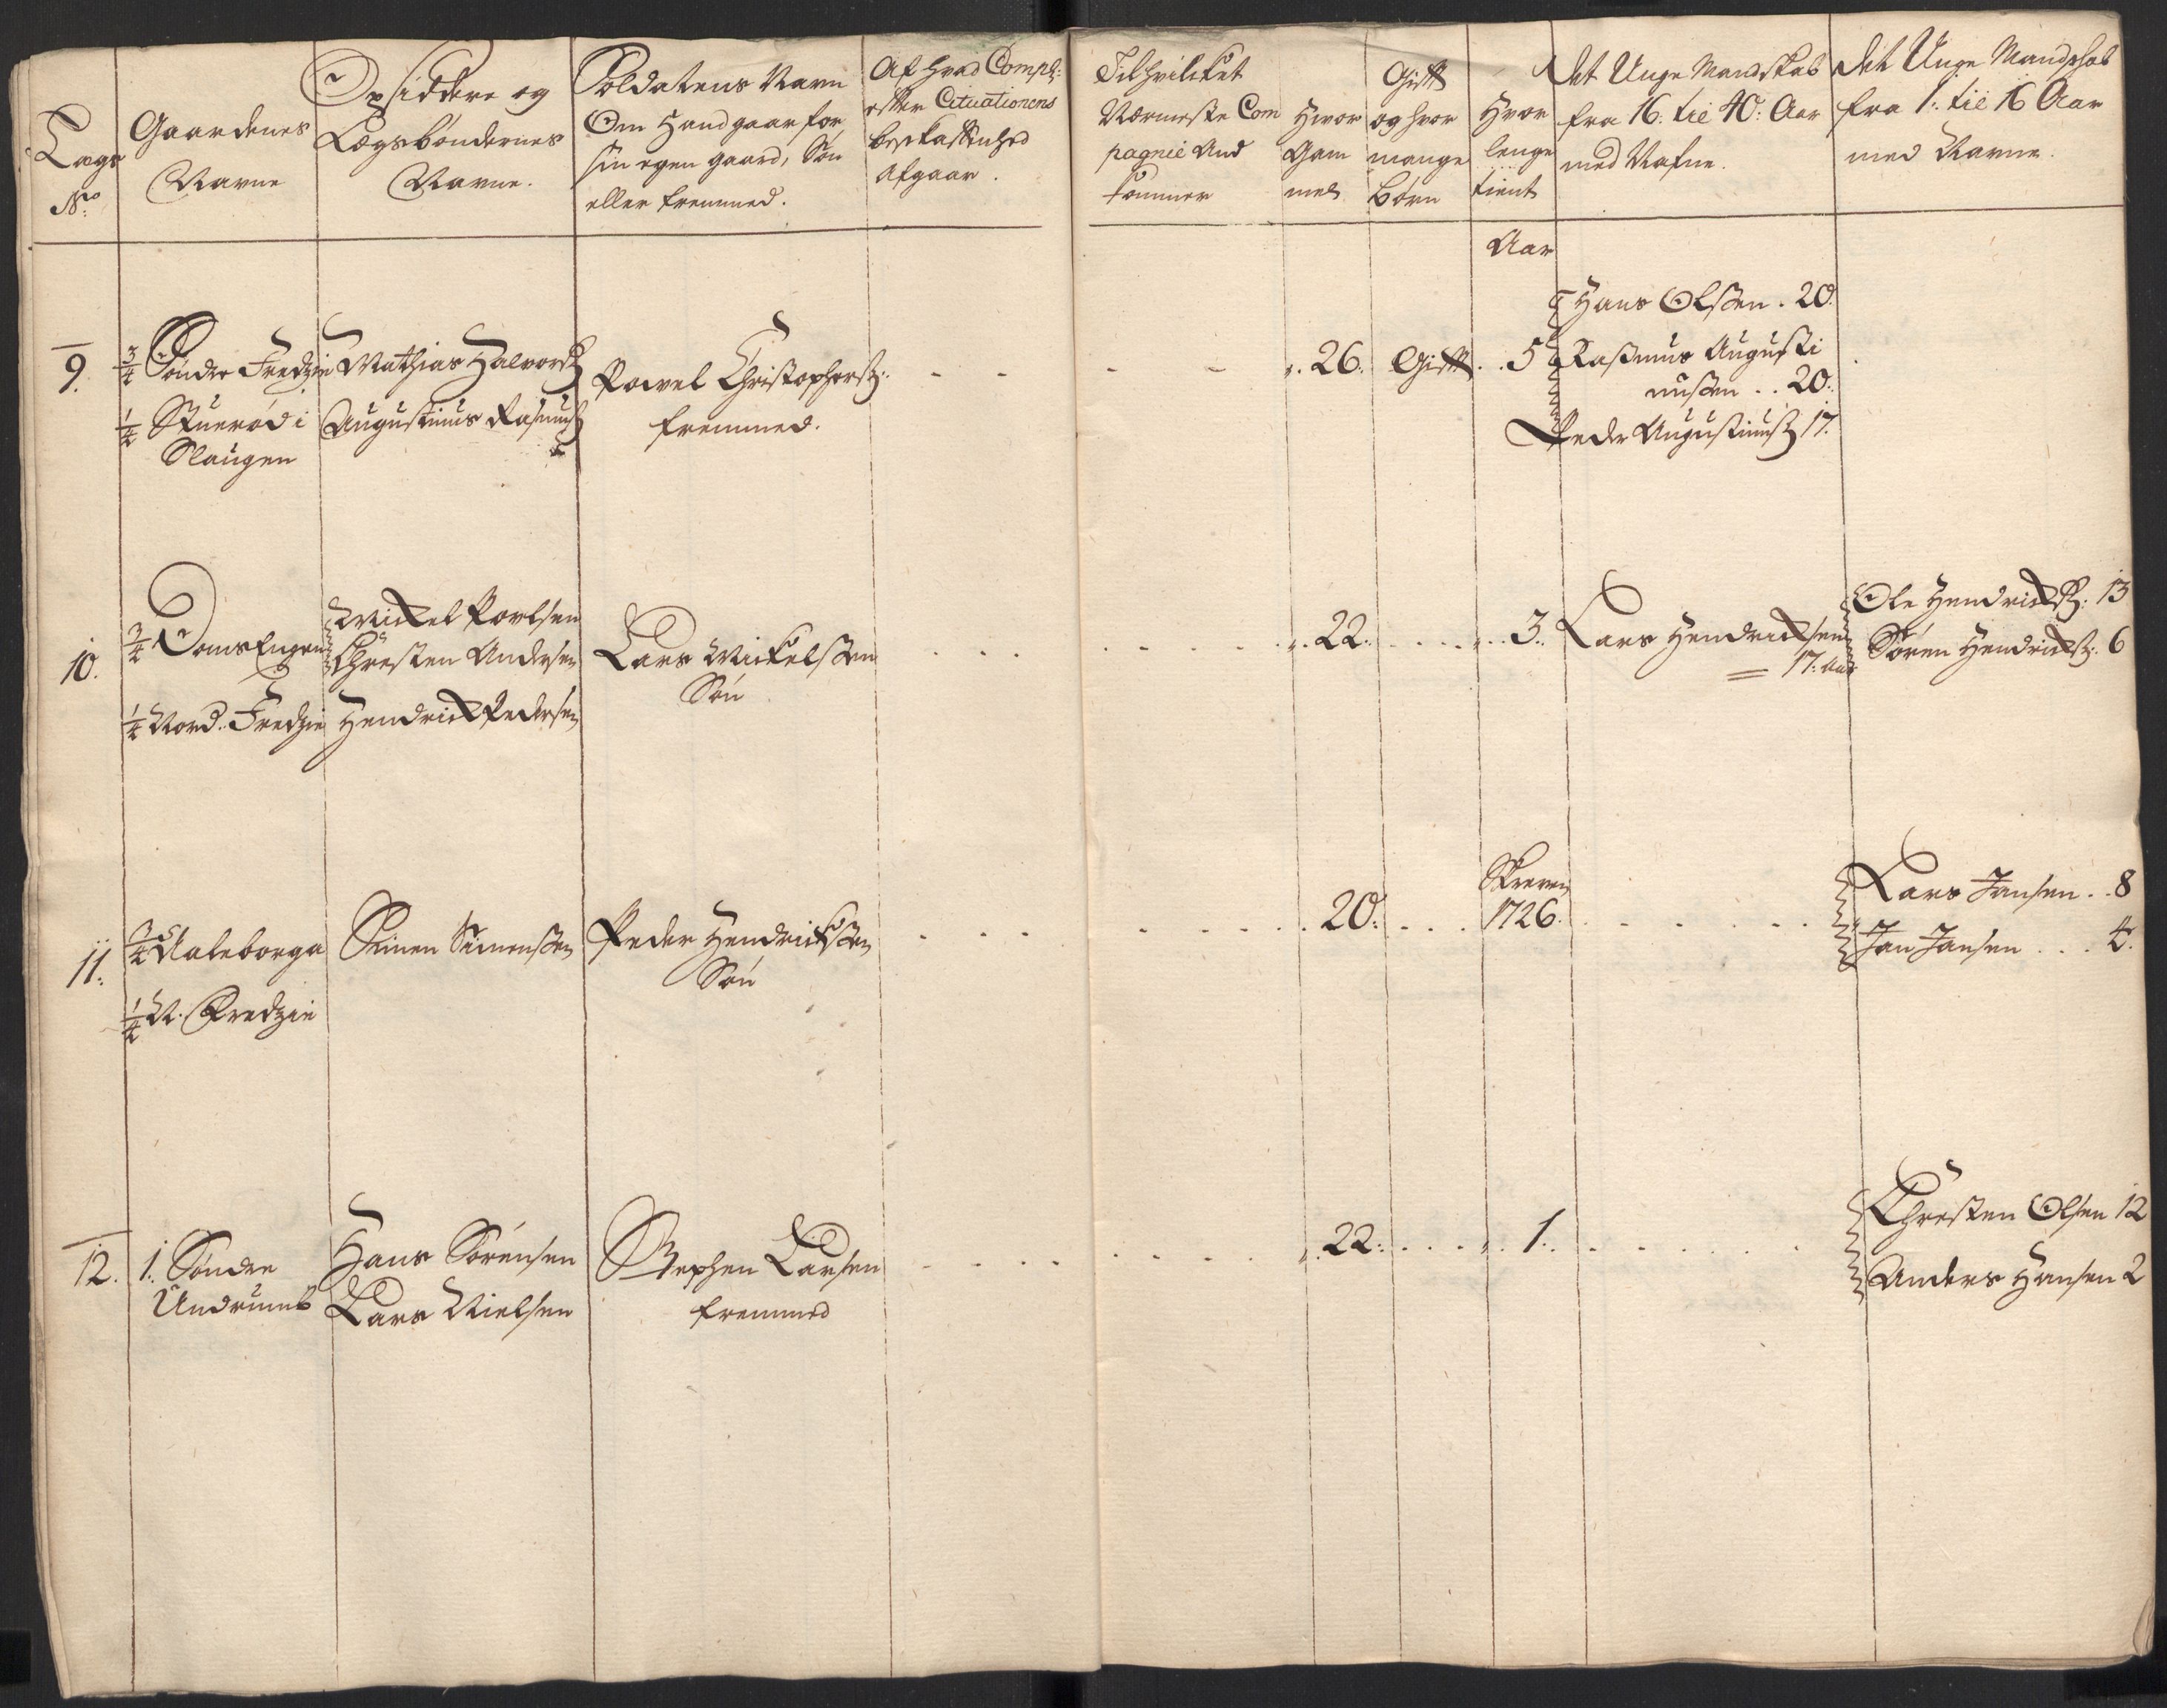 Lægs
No
Gaardenes
Navne
Opsiddere og
Lægsbøndernes
Navne.
Soldatens Navn
Om Hand gaar for
sin egen gaard, Søn
eller fremmed.
Af hvad Comp:
efter Cituationens
beskaffenhed
afgaar.
Til hvilcket
Nærmeste Com
pagnie And
kommer
Hvor
Gam
mel
Gifft
og hvor
mange
børn
Hvor
lenge
tient
Det Unge Mandskab
fra 16. til 40: Aar
med Nafne.
Det Unge Mandskab
fra 1: til 16 Aar
med Navne.
Aar
9.
3/4 Søndre Fredzie
1/4 Stuerød i
Slaugen
Mathias Halvors:
Augustinus Rasmus:
Powel Christophers:
fremmed.
26. Gifft. 5
Hans Olssen. 20.
Rasmus Augusti
nussen . . 20.
Peder Augustinus: 17.
10.
3/4 Doms Engen
1/4 Nord. Fredzie
Mickel Povelsen
Christen Andersen
Hendrick Pedersen
Lars Mickelssen
Søn
22. 3.
Lars Hendricksen
17. Aar
Ole Hendricks: 13
Søren Hendricks: 6
11.
3/4 Valeborga
1/4 N. Fredzie
Simen Simenssen
Peder Hendrickssen
Søn
20.
Skreven
1726.
Lars Jansen . . 8
Jan Jansen . . . 4.
12.
1. Søndre
Undrumb
Hans Sørensen
Lars Nielsen
Stephen Larsen
fremmed
22. 1.
Christen Olsen 12
Anders Hansen 2